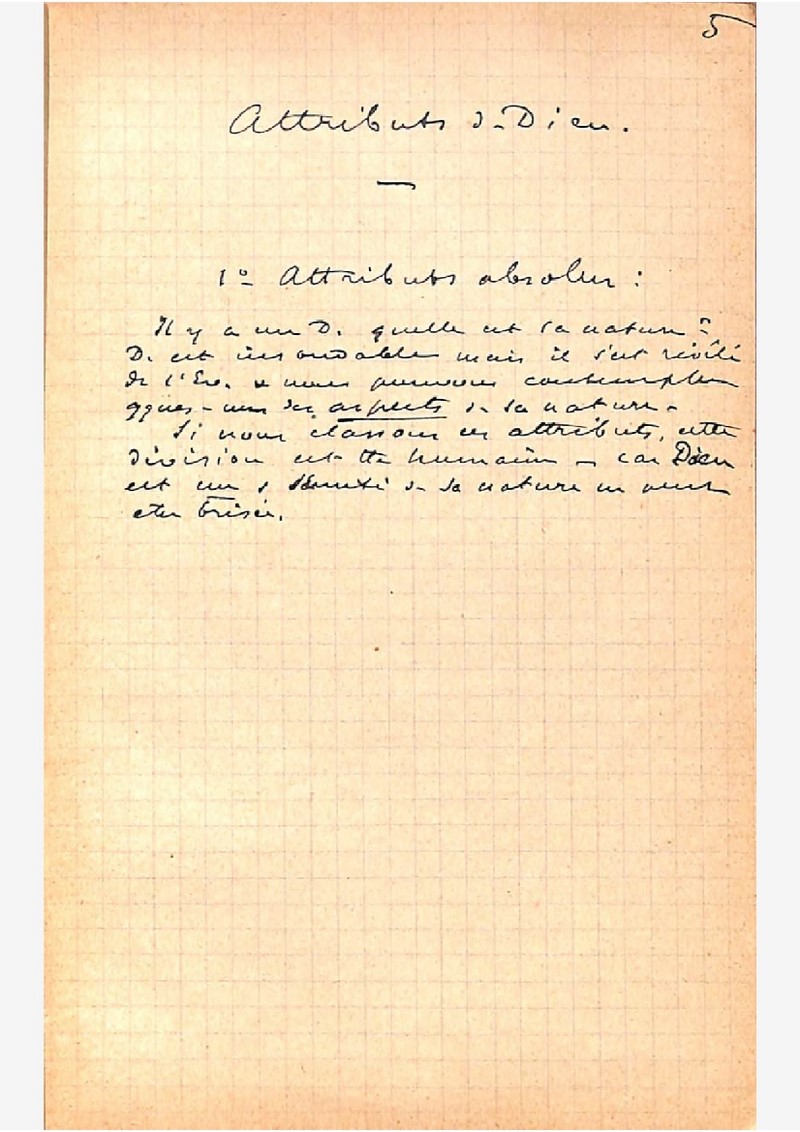 5
Attributs de Dieu.
—
1º Attributs absolus :
Il y a un D. quelle est sa nature ?
D. est insondable mais il s'est révélé
ds l'Ev. & nous pouvons contempler
qques-uns des aspects de sa nature.
Si nous classons ces attributs, cette
division est tte humaine – car Dieu
est un & l'unité de sa nature ne peut
être brisée.